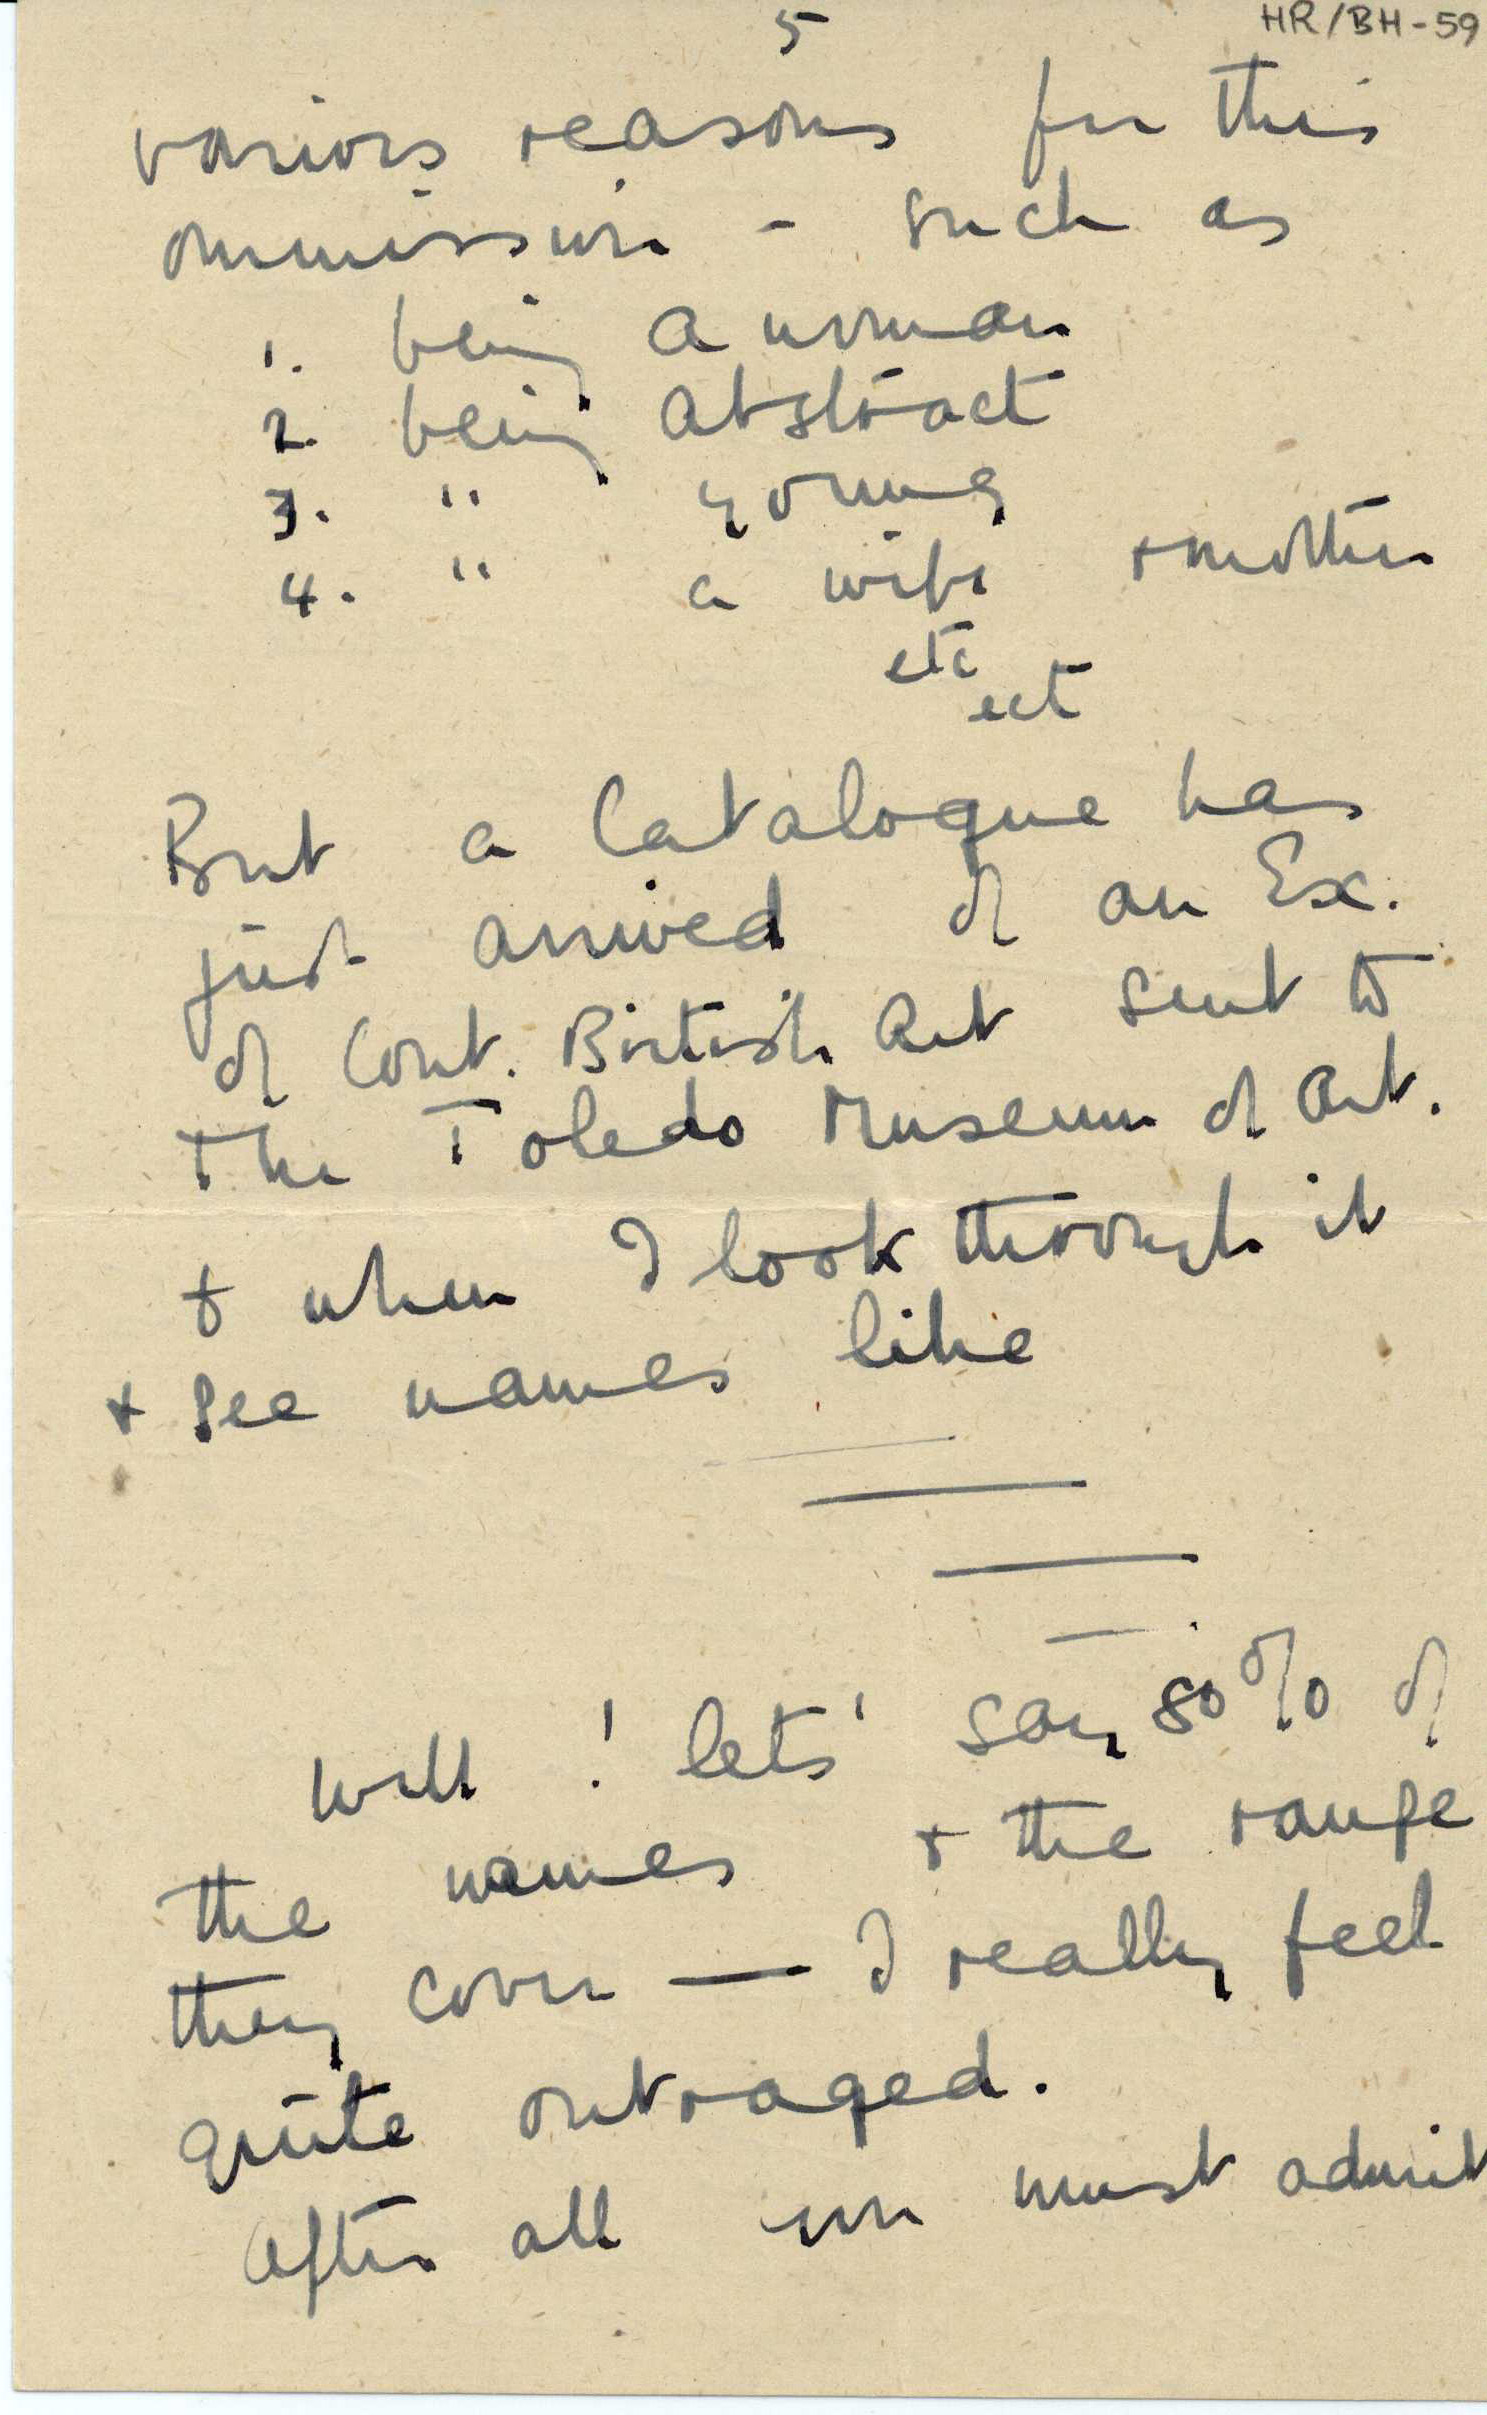 5
HR/BH-59
various reasons for this
ommission - such as
1. being a woman
2. being abstract
3. " young
4. " a wife + mother
etc
ect
But a Catalogue has
just arrived of an Ex.
of Cont. British Art sent to
The Toledo Museum of Art.
+ when I look through it
+ see names like
Well ! lets' say 80% of
the names + the range
they cover — I really feel
quite outraged.
After all one must admit